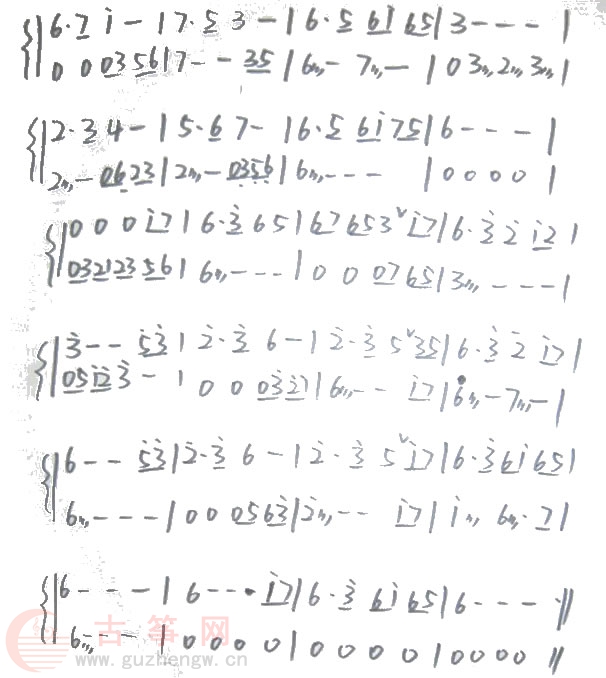 6·7 i - | 7·5 3 - | 6·5 6i 65 | 3 - - - |
0 0 0356 | 7 - - 35 | 6 - 7 - | 0 3 2 3 |
2·3 4 - | 5·6 7 - | 6·5 6i75 | 6 - - - |
2 - 0623 | 2 - 0356 | 6 - - - | 0 0 0 0 |
0 0 0 i7 | 6·3 6 5 | 67 653 i7 | 6·3 2 i2 |
0321235 6 | 6 - - - | 0 0 07 65 | 3 - - - |
3 - - 53 | 2·3 6 - | 2·3 5 35 | 6·3 2 i7 |
05i2 3 - | 0 0 0327 | 6 - - i7 | 6 - 7 - |
6 - - 53 | 2·3 6 - | 2·3 5 i7 | 6·3 6i 65 |
6 - - - | 0 0 0563 | 2 - - i7 | i 6·7 |
6 - - - | 6 - - · i7 | 6·3 6i 65 | 6 - - - ||
6 - - - | 0 0 0 0 | 0 0 0 0 | 0 0 0 0 ||
古筝网
www.guzhengw.cn